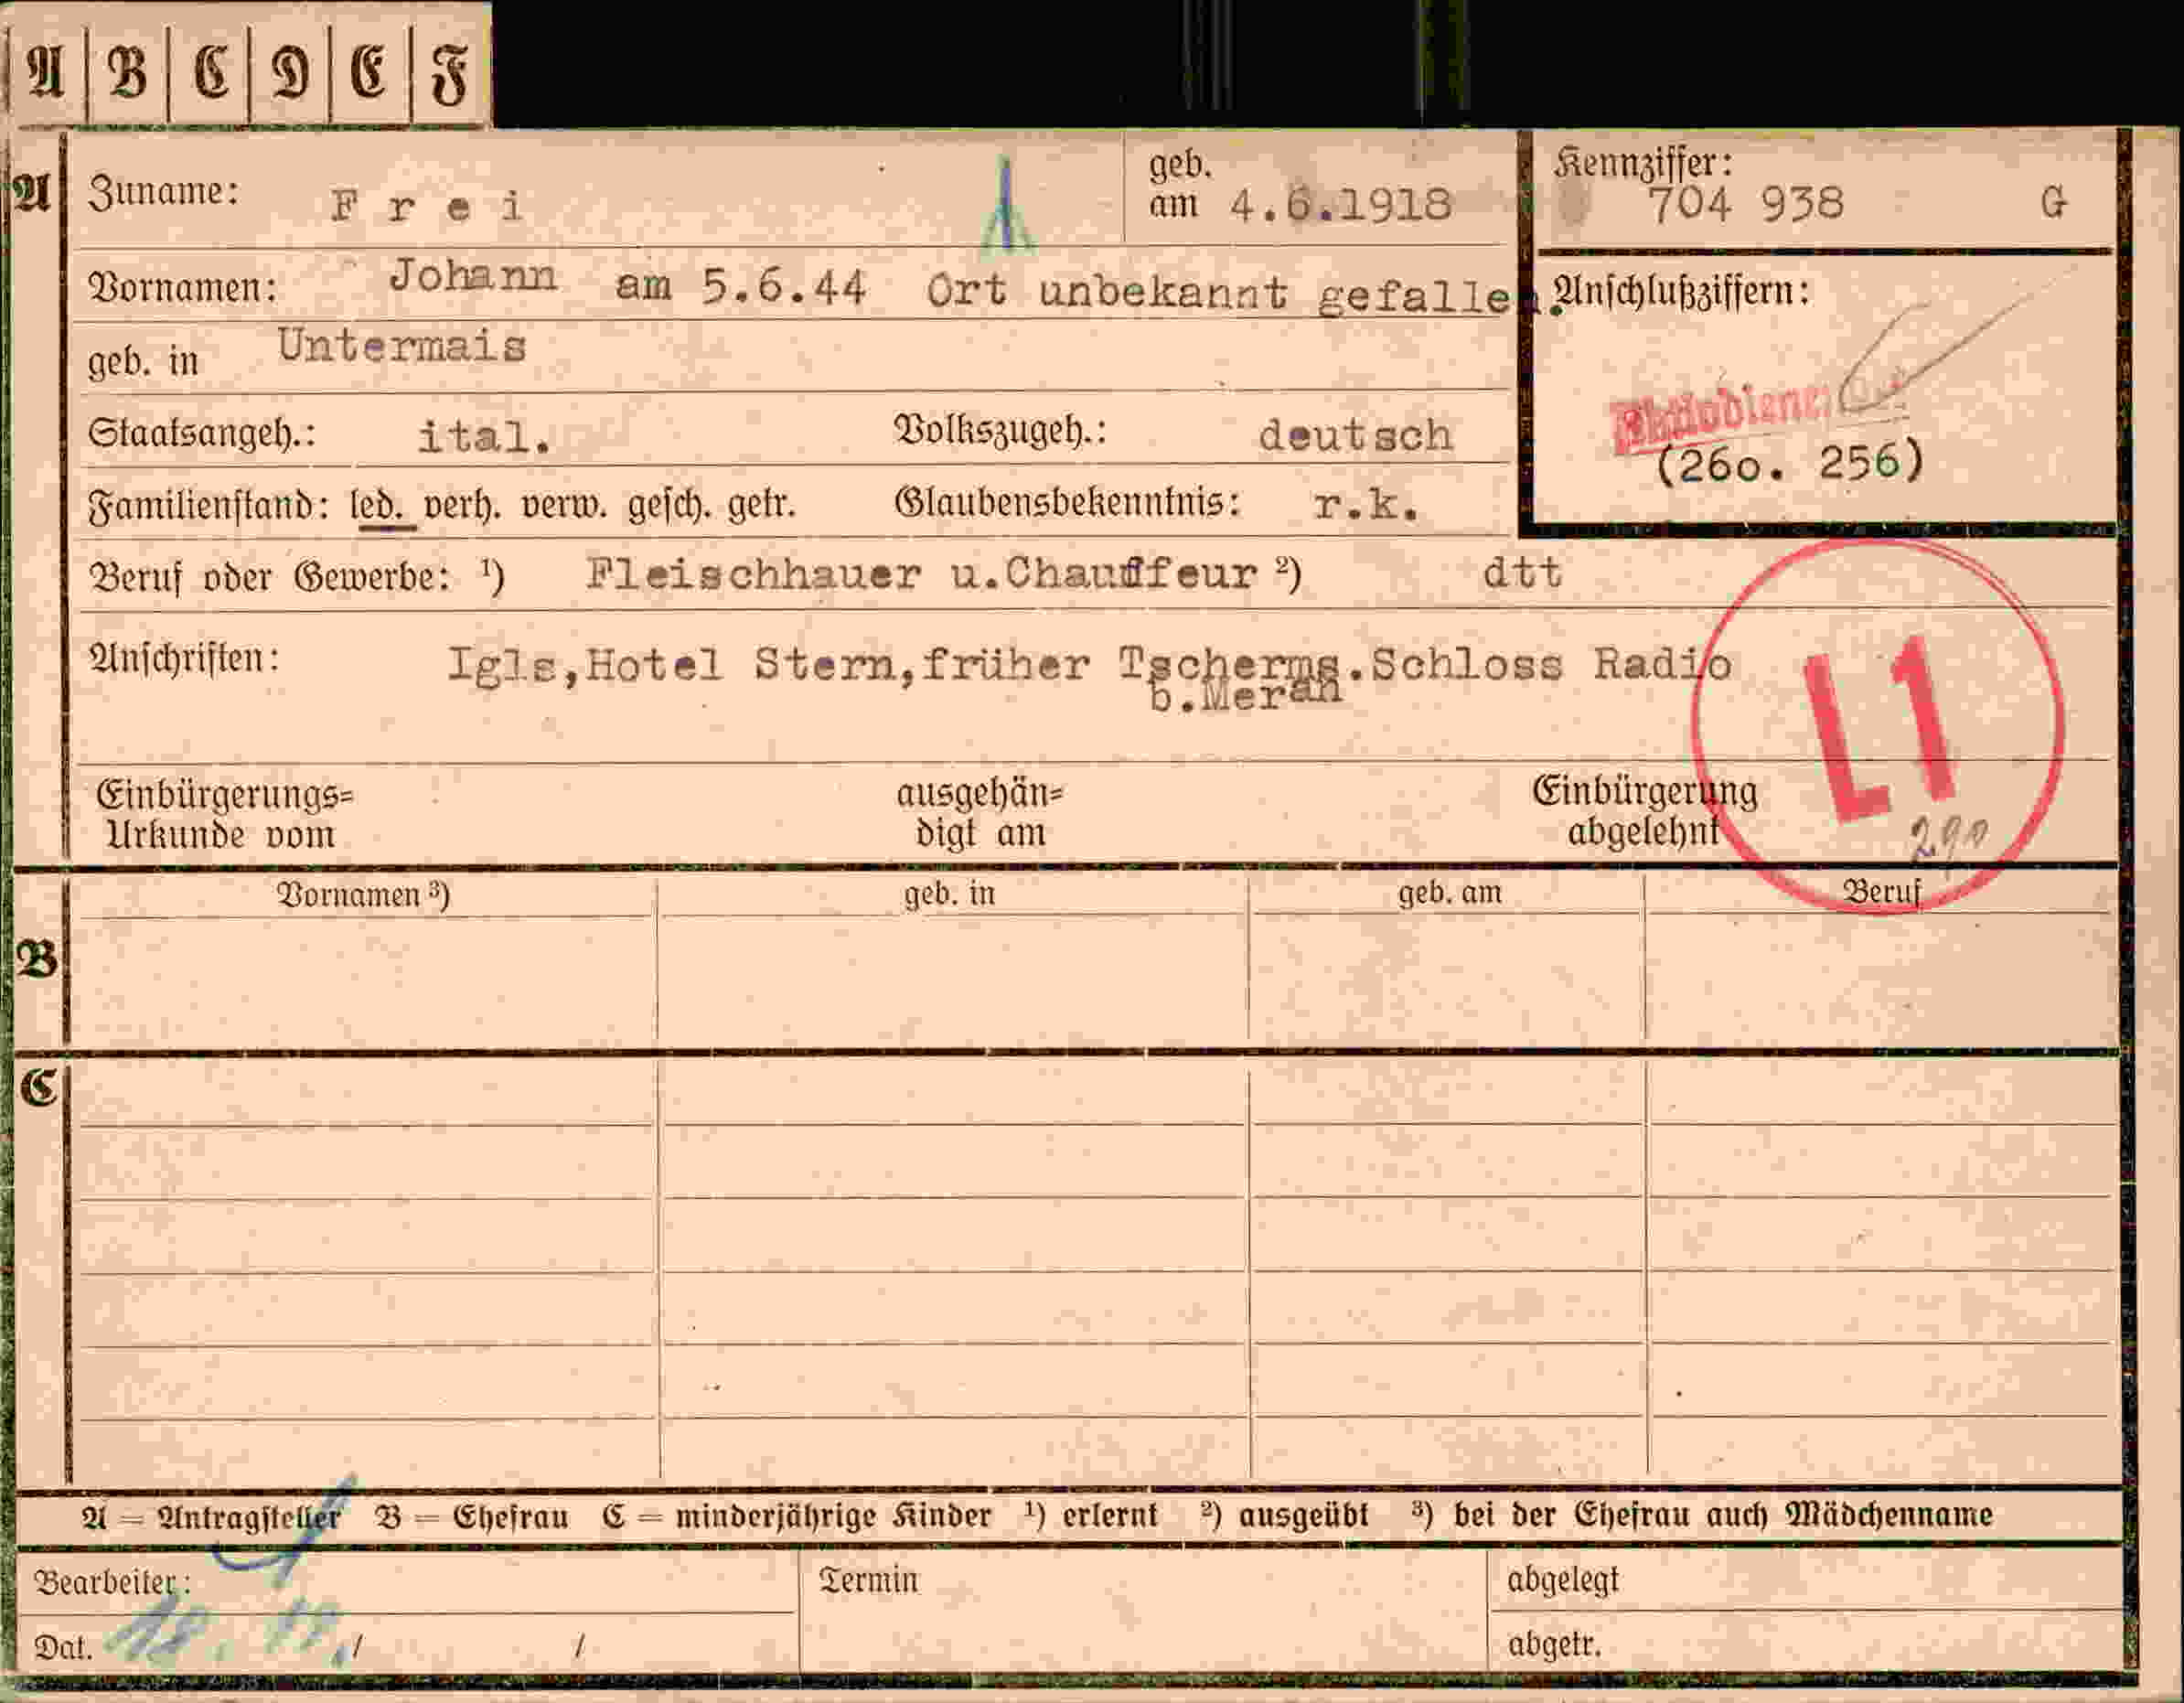 A B C D E F
A Zuname: Frei geb. am 4.6.1918 Kennziffer: 704 938 G
Vornamen: Johann am 5.6.44 Ort unbekannt gefallen. Anschlußziffern:
geb. in Untermais
Staatsangeh.: ital. Volkszugeh.: deutsch
(26o. 256)
Familienstand: led. verh. verw. gesch. getr. Glaubensbekenntnis: r.k.
Beruf oder Gewerbe: ¹) Fleischhauer u.Chauffeur ²) dtt
Anschriften: Igls,Hotel Stern,früher Tscherms.Schloss Radio
b.Meran
L1
Einbürgerungs= ausgehän= Einbürgerung
Urkunde vom digt am abgelehnt
290
Vornamen ³) geb. in geb. am Beruf
B
C
A = Antragsteller B = Ehefrau C = minderjährige Kinder ¹) erlernt ²) ausgeübt ³) bei der Ehefrau auch Mädchenname
Bearbeiter: Termin abgelegt
Dat. / / abgetr.